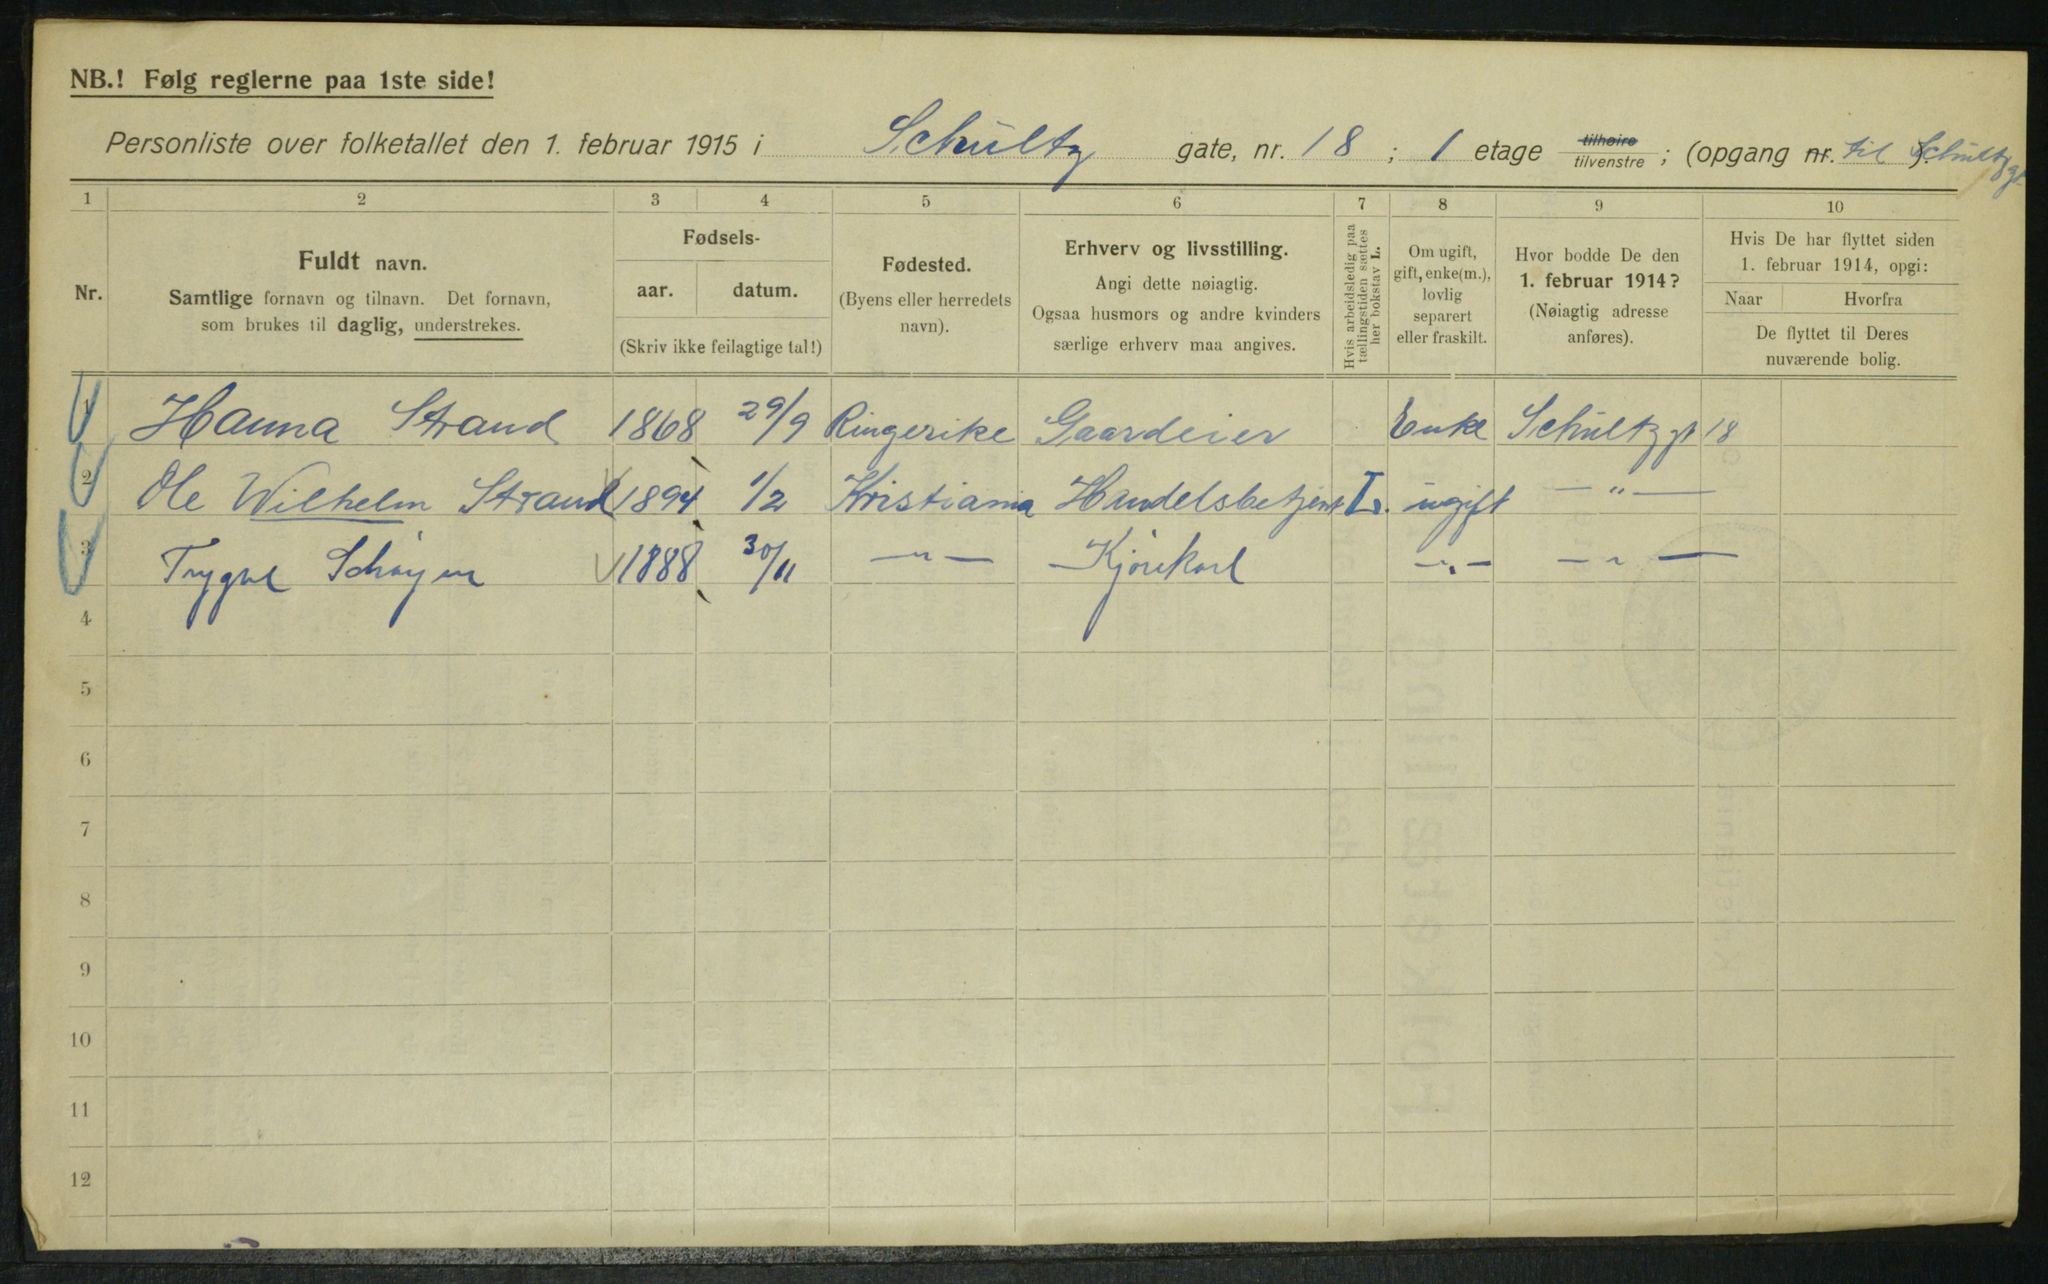 NB.! Følg reglerne paa 1ste side!
Personliste over folketallet den 1. februar 1915 i Schultz gate, nr. 18; 1 etage tilhøire tilvenstre; (opgang nr. til Schultzgt.).
1 2 3 4 5 6 7 8 9 10
Nr.
Fuldt navn.
Samtlige fornavn og tilnavn. Det fornavn,
som brukes til daglig, understrekes.
Fødsels-
aar. datum.
(Skriv ikke feilagtige tal!)
Fødested.
(Byens eller herredets
navn).
Erhverv og livsstilling.
Angi dette nøiagtig.
Ogsaa husmors og andre kvinders
særlige erhverv maa angives.
Hvis arbeidsledig paa
tællingstiden sættes
her bokstav L.
Om ugift,
gift, enke(m.),
lovlig
separert
eller fraskilt.
Hvor bodde De den
1. februar 1914?
(Nøiagtig adresse
anføres).
Hvis De har flyttet siden
1. februar 1914, opgi:
Naar Hvorfra
De flyttet til Deres
nuværende bolig.
1 Hanna Strand 1868 29/9 Ringerike Gaardeier Enke Schultzgt 18
2 Ole Wilhelm Strand 1894 1/2 Kristiania Handelsbetjent L. ugift — " —
3 Trygve Schøyen 1888 30/11 — " — Kjørekarl — " — — " —
4
5
6
7
8
9
10
11
12